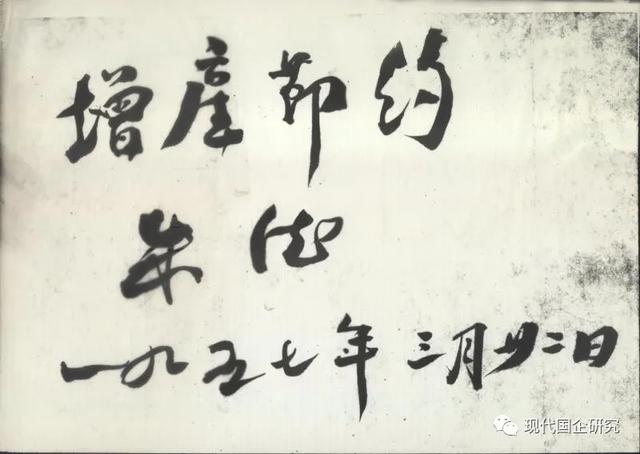 增产节约
朱德
一九五七年三月廿二日
现代国企研究